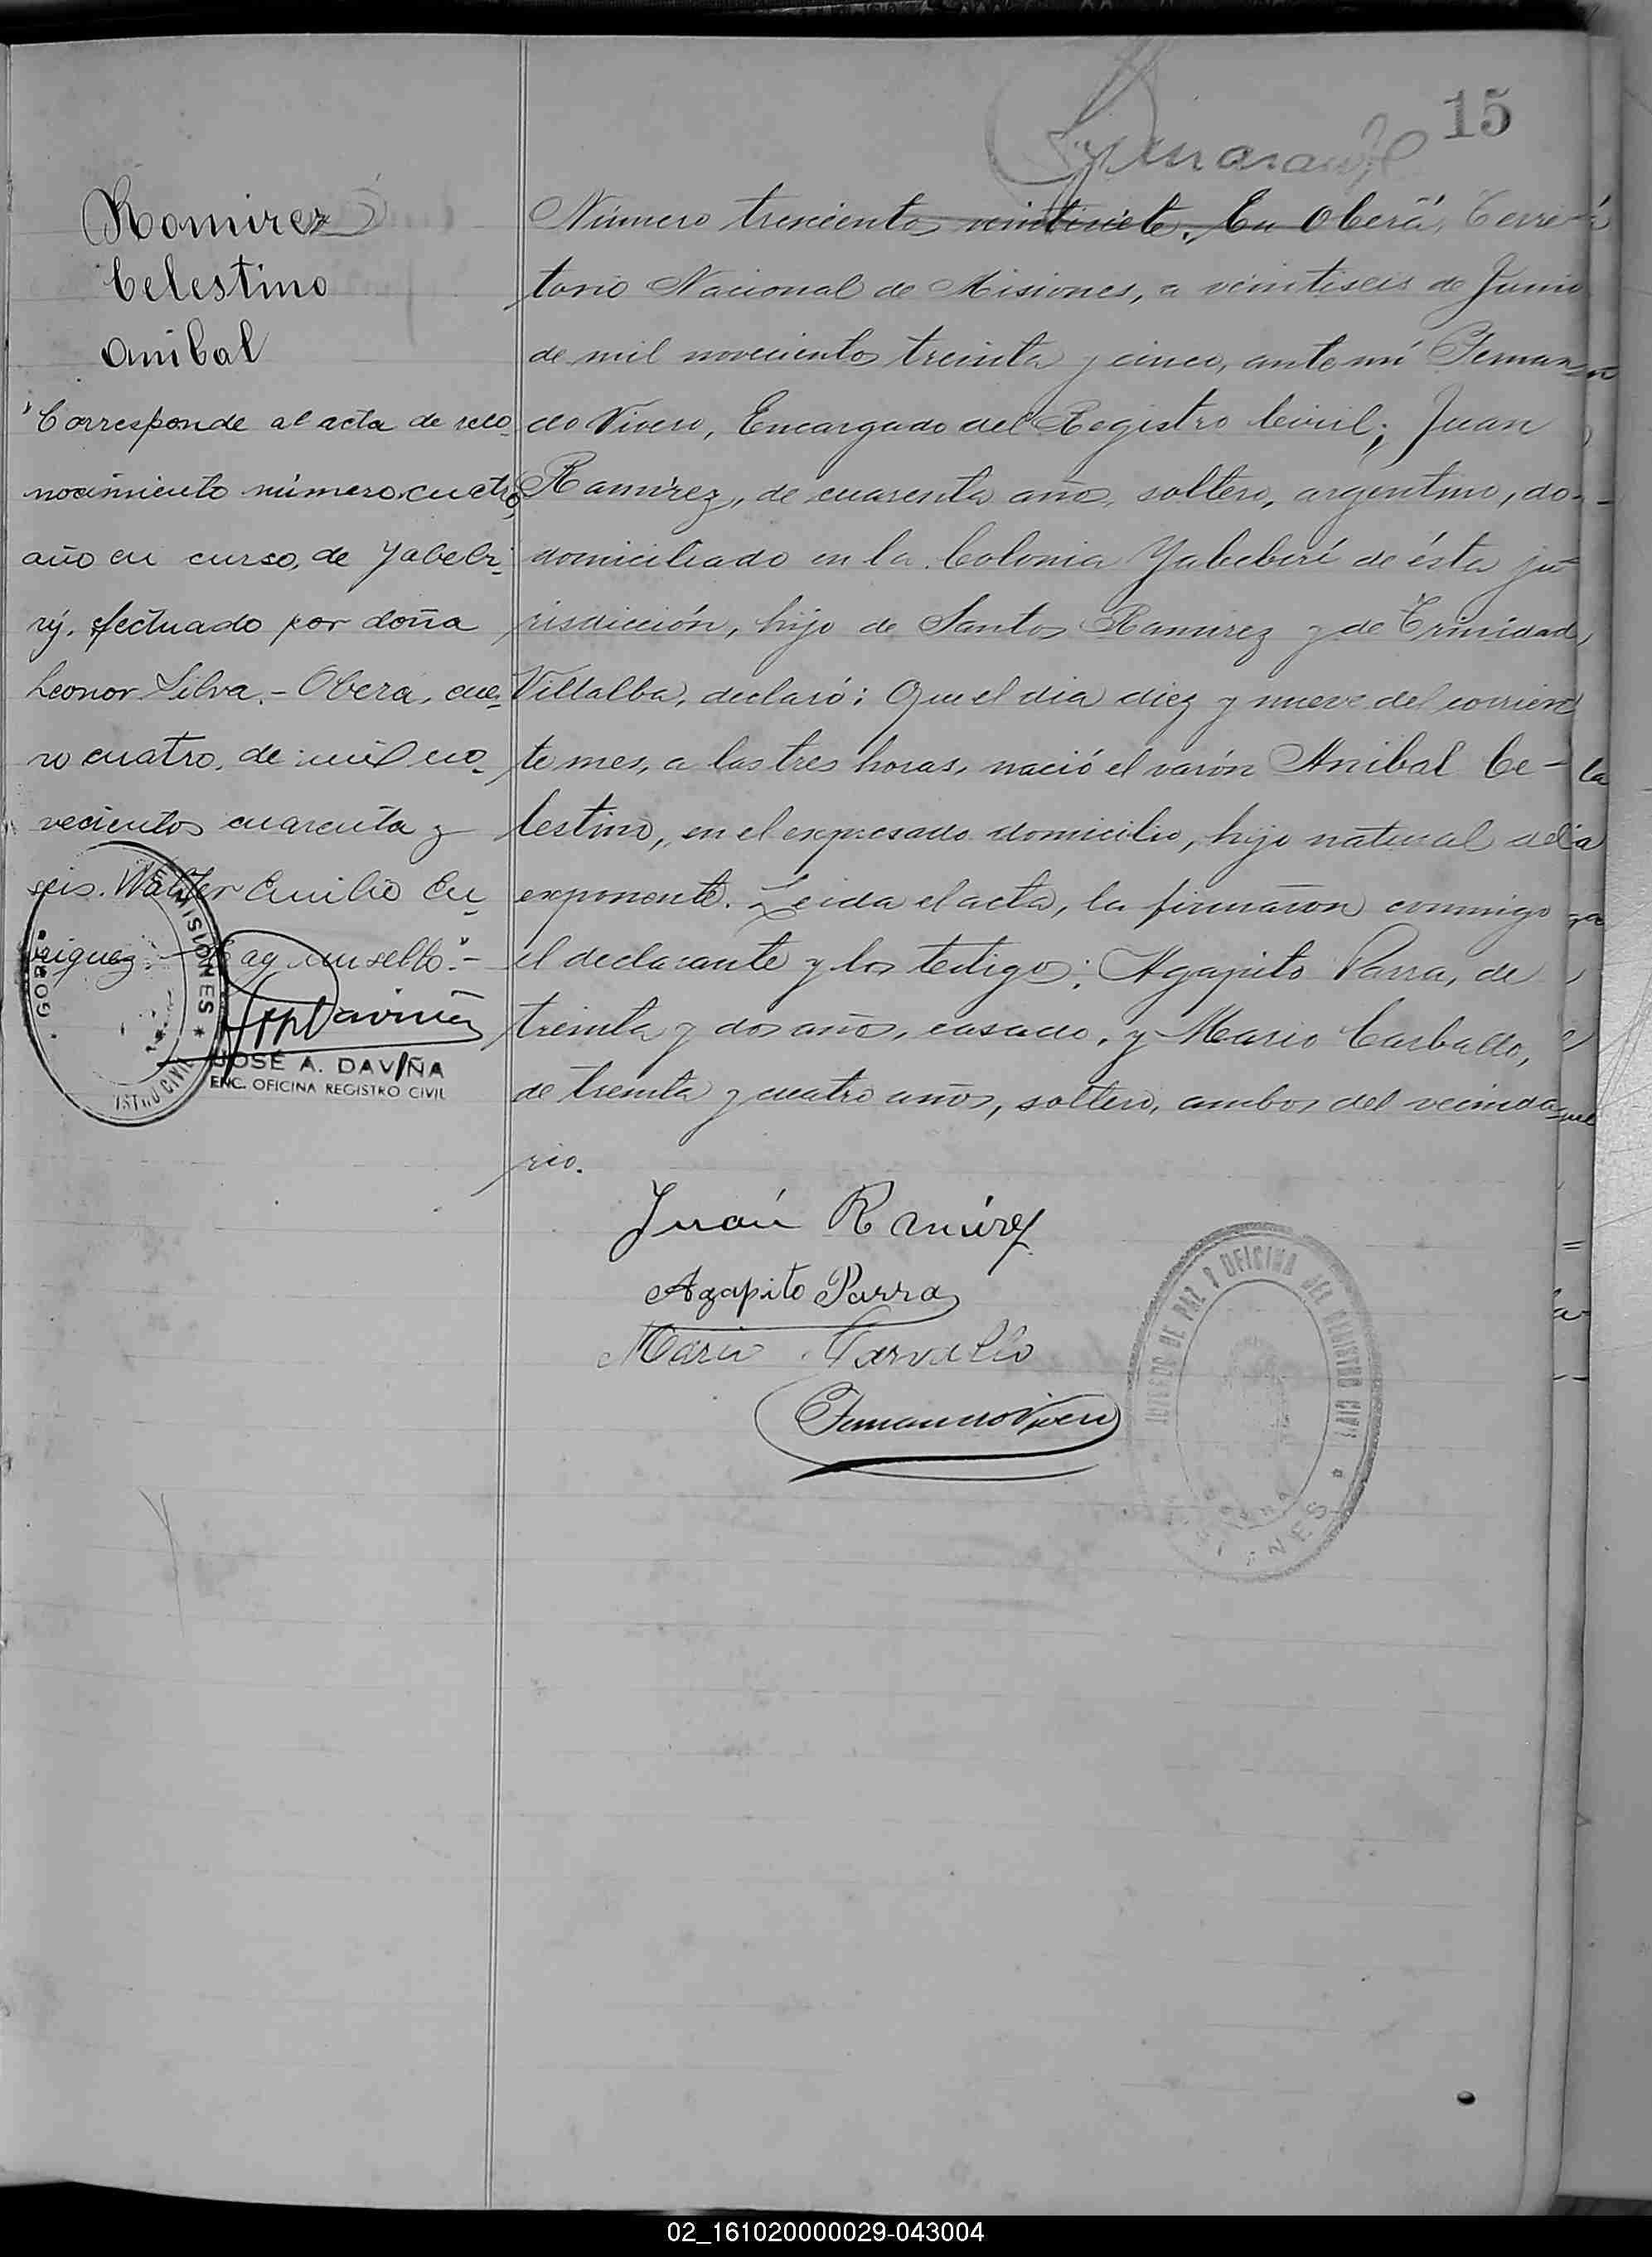 15
Ramirez
Celestino
Anibal
"Corresponde al acta de reco-
nocimiento número cuatro,
año en curso, de Yabebi-
rý, efectuado por doña
Leonor Silva.- Oberá, ene-
ro cuatro, de mil no-
vecientos cuarenta y
seis. Walter Emilio En-
riquez.- Hay un sello".-
MISIONES *
OBERÁ
JOSÉ A. DAVIÑA
ENC. OFICINA REGISTRO CIVIL
Número trescientos veintisiete. En Oberá, Terri-
torio Nacional de Misiones, a veintiseis de Junio
de mil novecientos treinta y cinco, ante mí Fernan-
do Vivero, Encargado del Registro Civil; Juan
Ramírez, de cuarenta años, soltero, argentino, do-
domiciliado en la Colonia Yabebirí de ésta ju-
risdicción, hijo de Santos Ramirez y de Trinidad
Villalba, declaró: Que el dia diez y nueve del corrien
te mes, a las tres horas, nació el varón Anibal Ce-
lestino, en el expresado domicilio, hijo natural del
exponente. Leida el acta, la firmaron conmigo
el declarante y los testigos: Agapito Parra, de
treinta y dos años, casado, y Mario Carballo,
de treinta y cuatro años, soltero, ambos del vecinda-
rio.
Juán Ramírez
Agapito Parra
Mario Carvallo
Fernando Vivero
JUZGADO DE PAZ Y OFICINA DEL REGISTRO CIVIL
OBERA
MISIONES
02_161020000029-043004